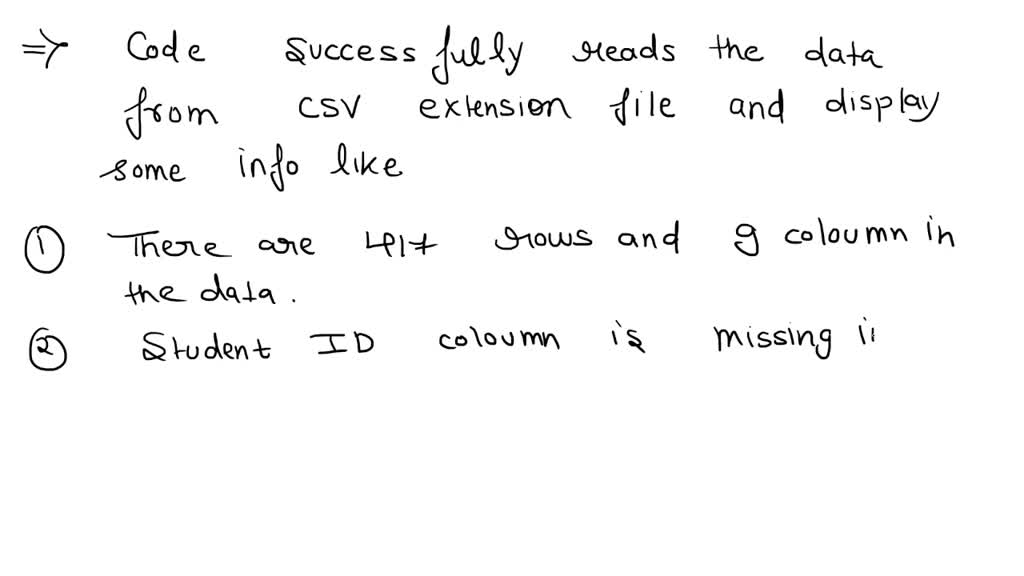 ⇒ Code successfully reads the data
from CSV extension file and display
some info like
① There are 417 rows and 9 coloumn in
the data.
② Student ID coloumn is missing i